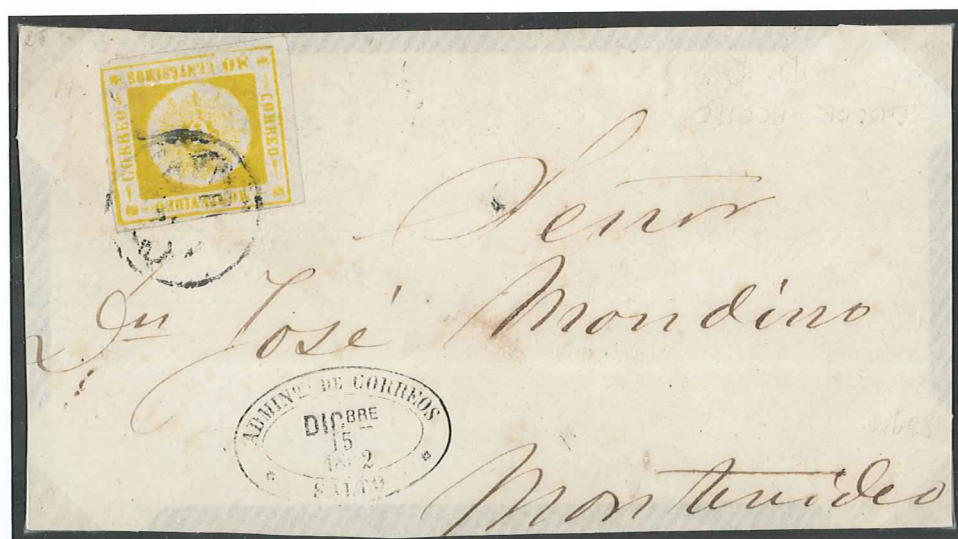 80 CENTÉSIMOS
CORREO
CORREO
MONTEVIDEO
Señor
Dn José Mondino
ADMINON DE CORREOS
DICBRE
15
SALTO
Montevideo